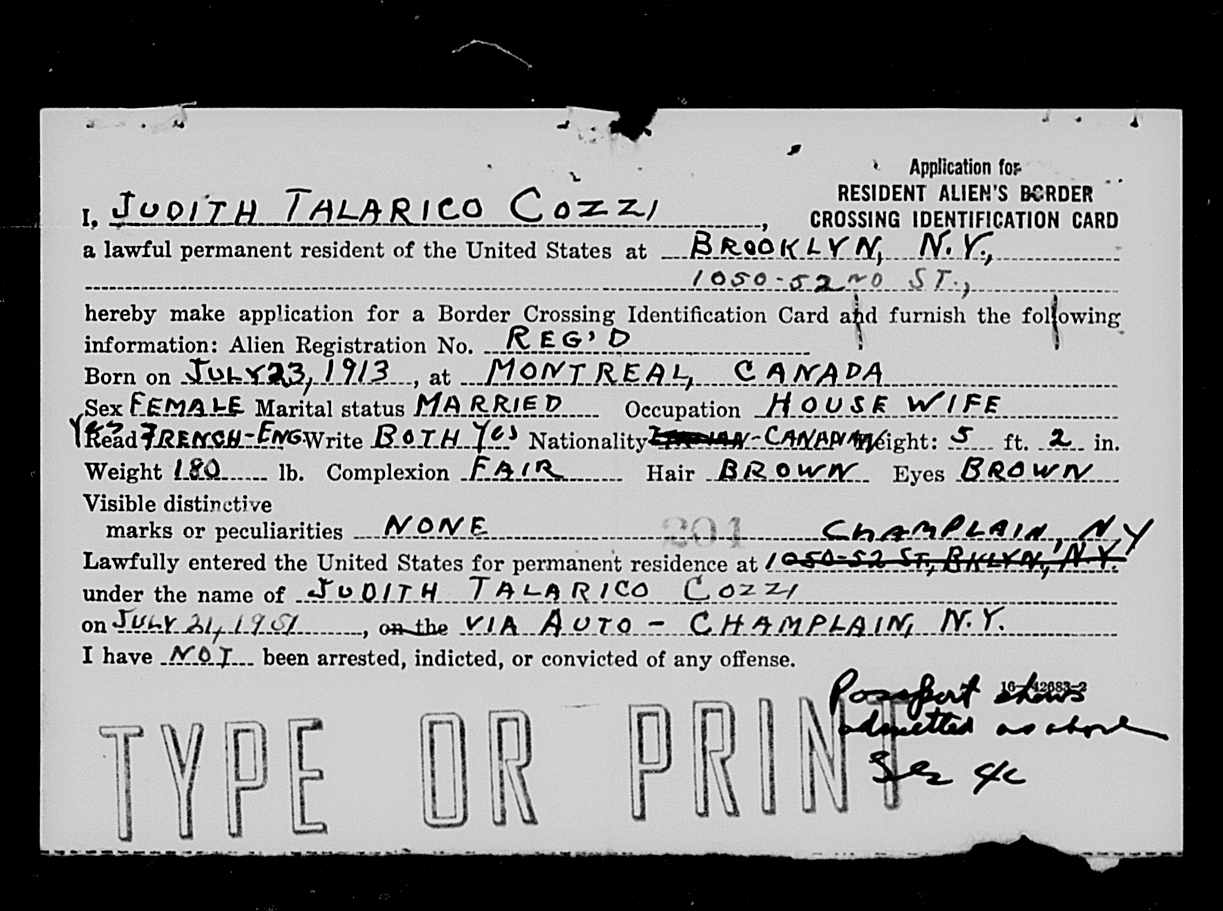 Application for
RESIDENT ALIEN'S BORDER
CROSSING IDENTIFICATION CARD
I, JUDITH TALARICO COZZI,
a lawful permanent resident of the United States at BROOKLYN, N.Y.,
1050-52ND ST.,
hereby make application for a Border Crossing Identification Card and furnish the following
information: Alien Registration No. REG'D
Born on JULY 23, 1913, at MONTREAL, CANADA
Sex FEMALE Marital status MARRIED Occupation HOUSE WIFE
Yes Read FRENCH-ENG. Write BOTH Yes Nationality -CANADIAN Height: 5 ft. 2 in.
Weight 180 lb. Complexion FAIR Hair BROWN Eyes BROWN
Visible distinctive
marks or peculiarities NONE
201 CHAMPLAIN, NY
Lawfully entered the United States for permanent residence at 1050-52 ST, BKLYN, N.Y.
under the name of JUDITH TALARICO COZZI
on JULY 21, 1951, on the VIA AUTO - CHAMPLAIN, N.Y.
I have NOT been arrested, indicted, or convicted of any offense.
16-42683-2
Passport shows
admitted as above
TYPE OR PRINT